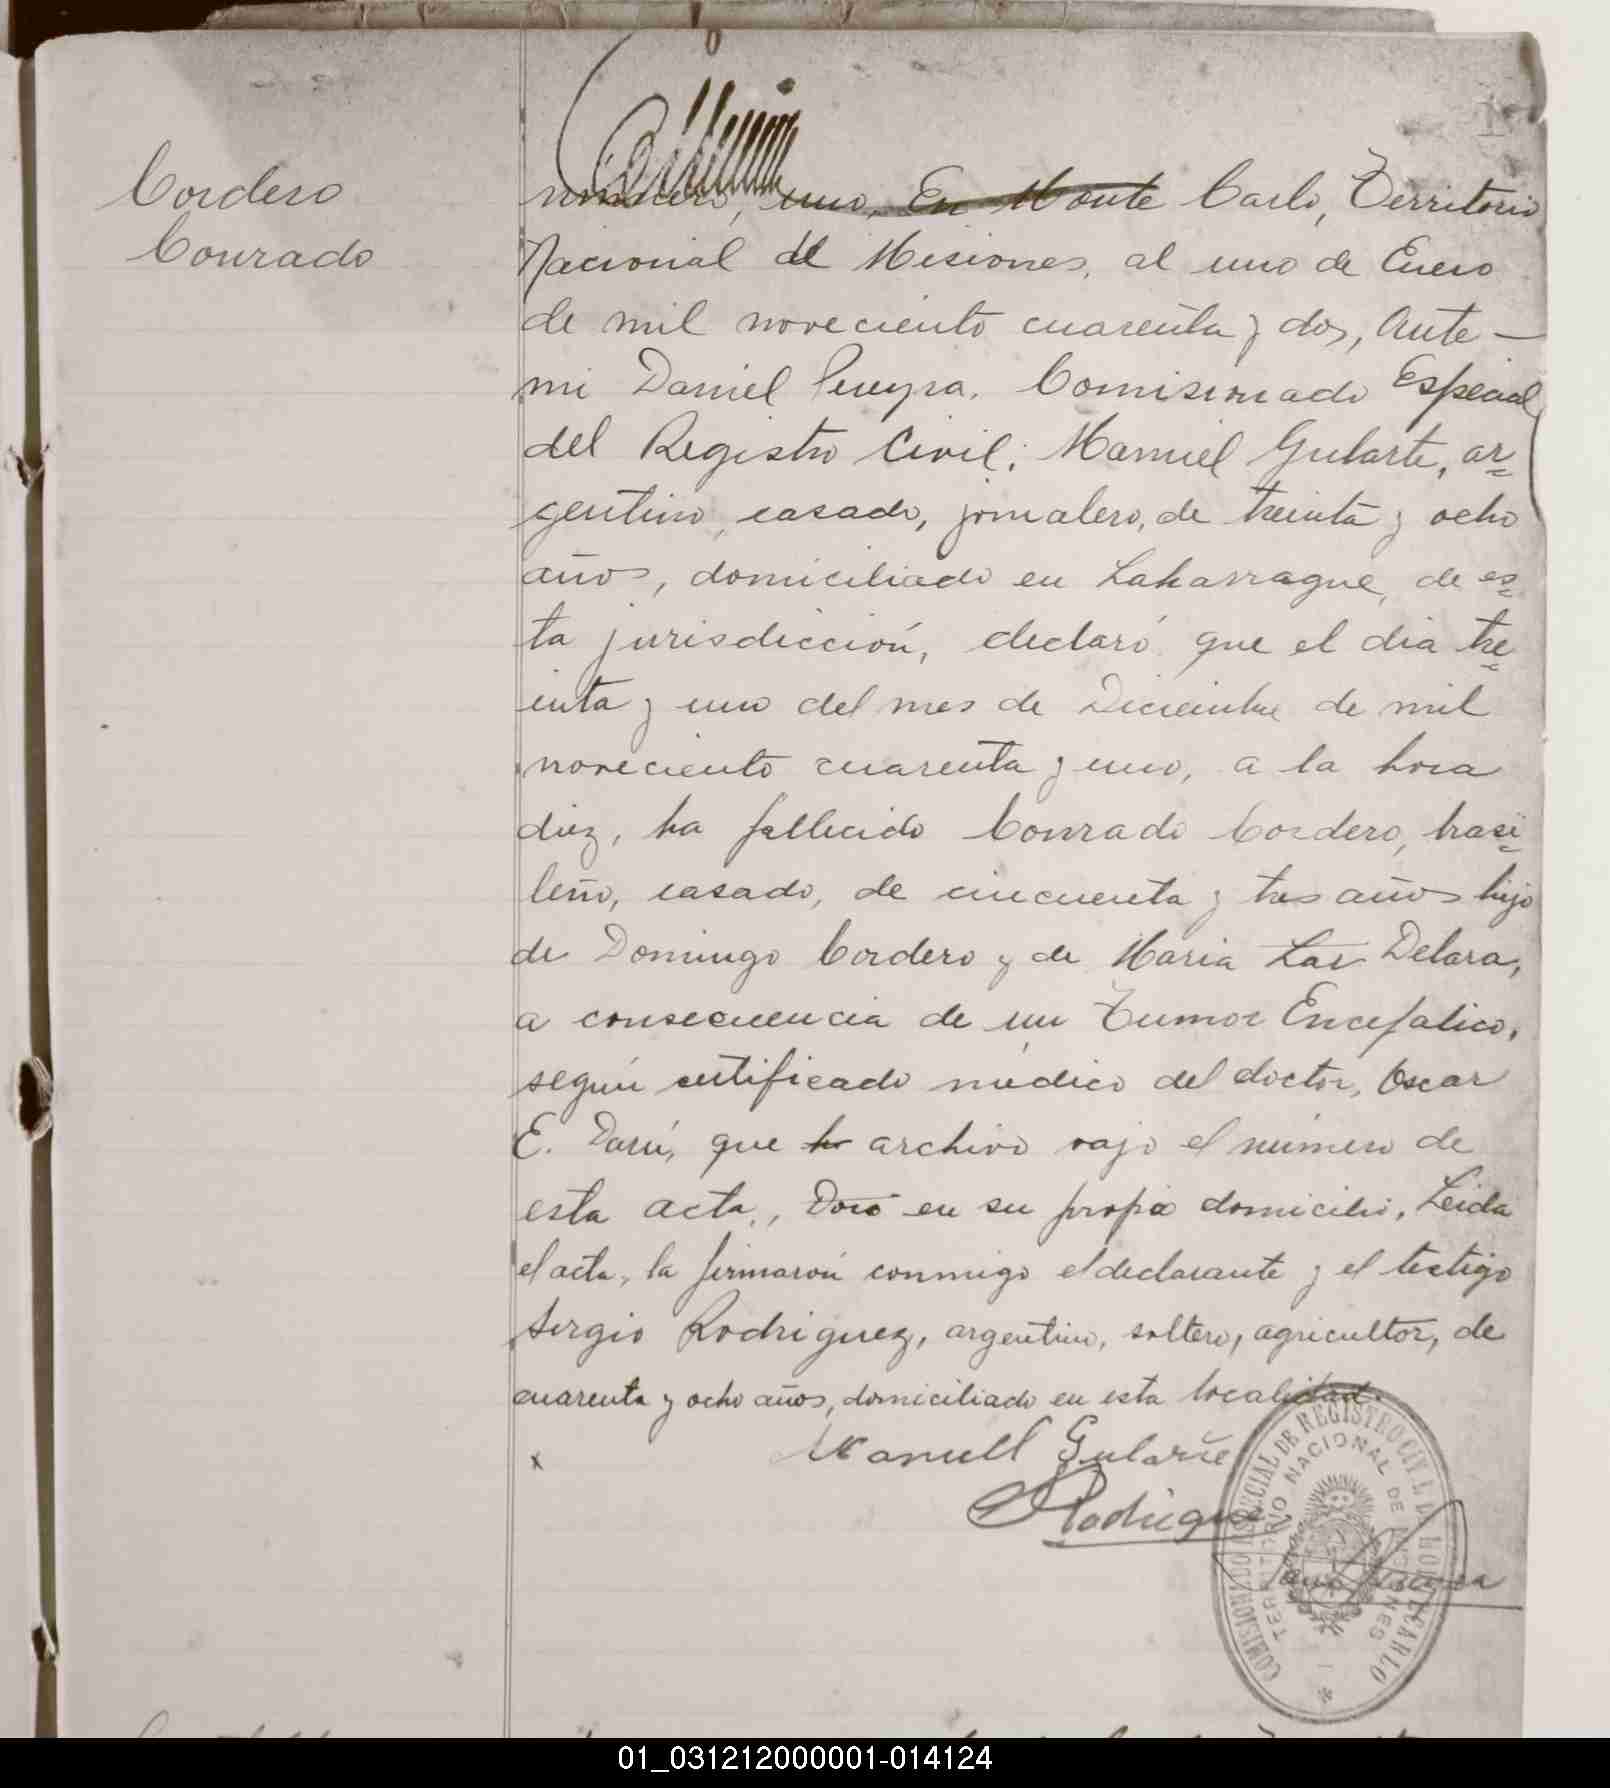 1
Cordero
Conrado
número, uno, En Monte Carlo, Territorio
Nacional de Misiones, al uno de Enero
de mil noveciento cuarenta y dos, Ante
mi Daniel Pereyra. Comisionado Especial
del Registro Civil; Manuel Gularte, ar-
gentino, casado, jornalero, de treinta y ocho
años, domiciliado en Laharrague, de es-
ta jurisdicción, declaró que el dia tre-
inta y uno del mes de Diciembre de mil
noveciento cuarenta y uno, a la hora
diez, ha fallecido Conrado Cordero, brasi-
leño, casado, de cincuenta y tres años hijo
de Domingo Cordero y de Maria Lar Delara,
a consecuencia de un Tumor Encefalico,
según certificado médico del doctor, Oscar
E. Darú, que archivo vajo el número de
esta acta, en su propio domicilio, Leida
el acta, la firmarón conmigo el declarante y el testigo
Sergio Rodriguez, argentino, soltero, agricultor, de
cuarenta y ocho años, domiciliado en esta localidad.
x Manuell Gularte
SRodrigue
COMISIONADO ESPECIAL DE REGISTRO CIVIL DE MONTECARLO
TERRITORIO NACIONAL DE MISIONES
01_031212000001-014124